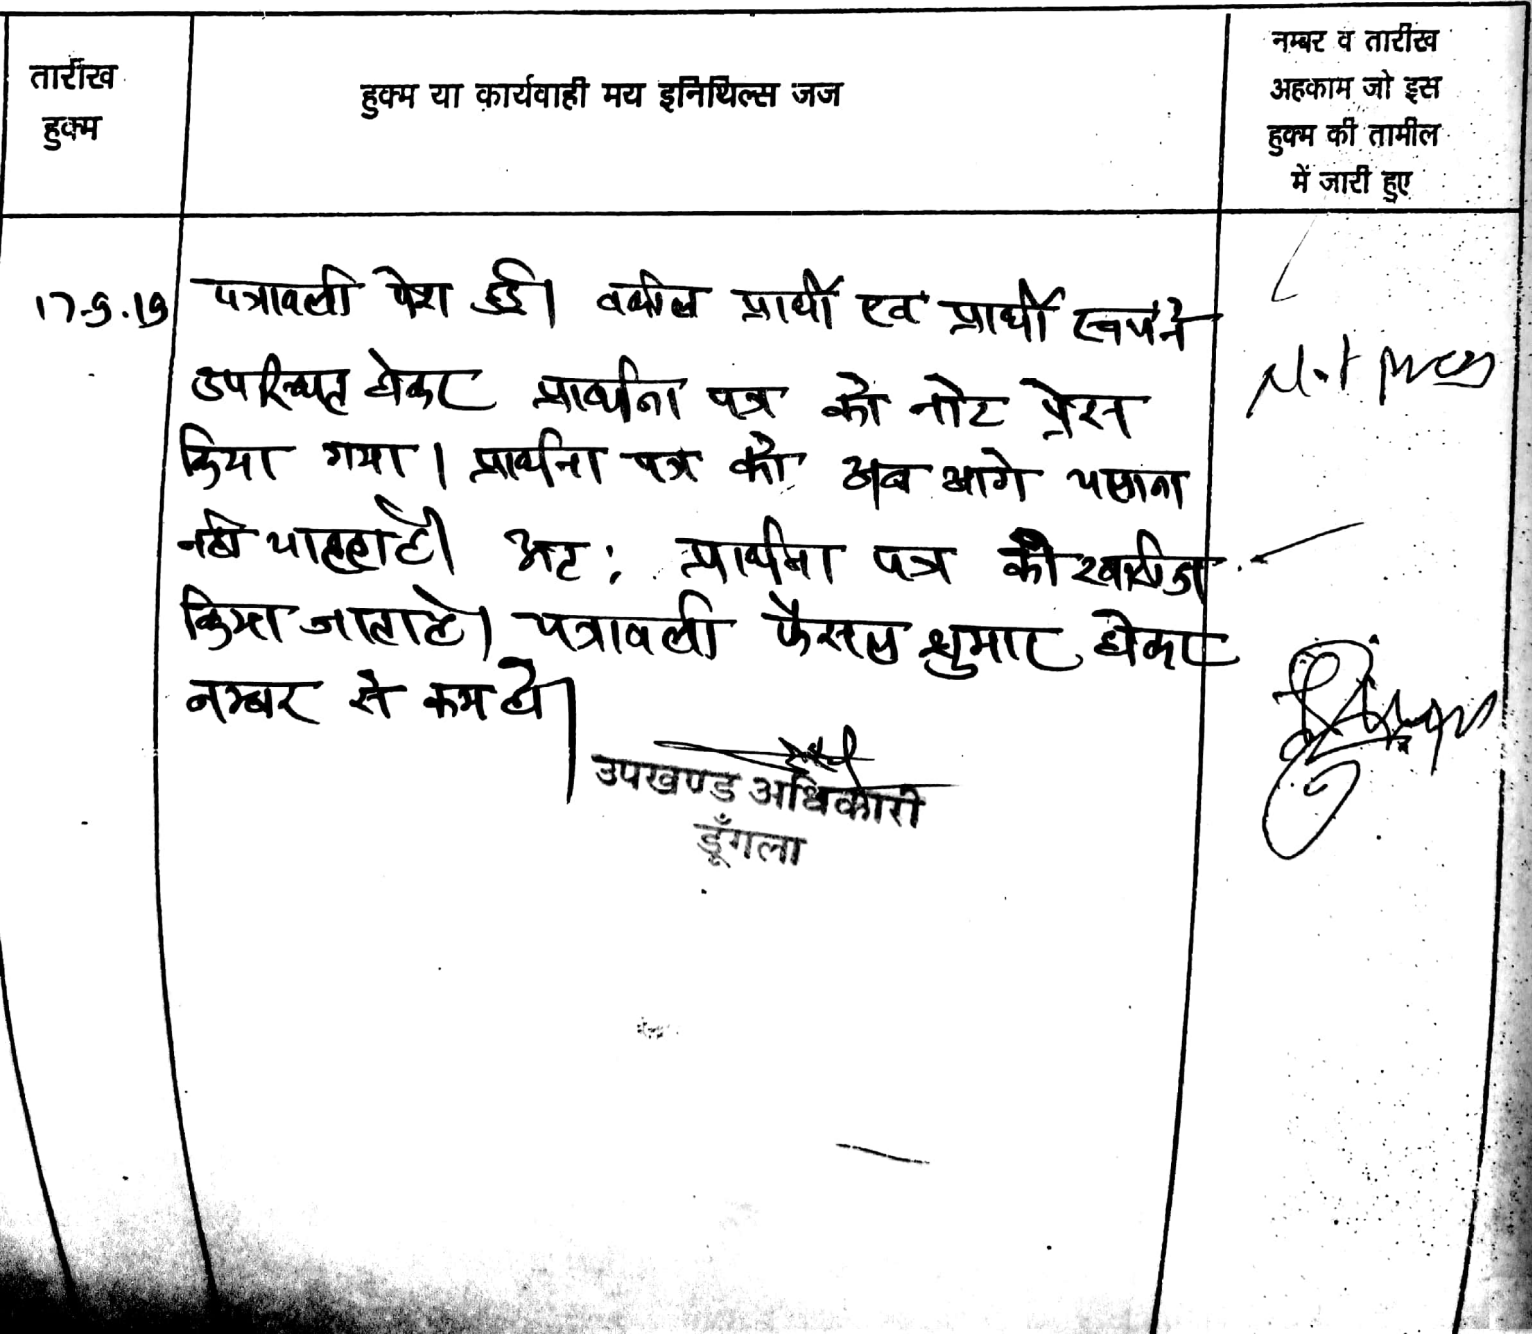 तारीख
हुक्म
हुक्म या कार्यवाही मय इनिथिल्स जज
नम्बर व तारीख
अहकाम जो इस
हुक्म की तामील
में जारी हुए
पत्रावली पेश हुई। वकील प्रार्थी एवं प्रार्थी स्वयं ने
उपस्थित होकर प्रार्थना पत्र को नोट प्रेस
किया गया। प्रार्थना पत्र को अब आगे चलाना
नही चाहता है। अतः प्रार्थना पत्र को खारीज
किया जाता है। पत्रावली फैसल शुमार होकर
नम्बर से कम हो।
Not press
उपखण्ड अधिकारी
डूँगला